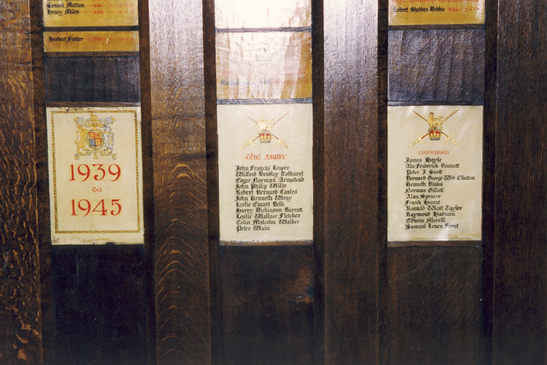 Samuel Mutton
Henry Miles
Herbert Forster
1939
to
1945
THE ARMY
John Francis Leaper
Wilfred Bradley Tolhurst
Edgar Norman Armstead
John Philip Wilde
Robert Bernard Coates
John Kenneth Wray
Leslie Ewart Belk
Harry Dickinson Barrett
Leslie Wallace Fletcher
Colin Malcolm Walker
Peter Wain
Robert Sheddon Dobbie
James Hoyle
Alec Frederick Bennett
Peter J. Scott
Bernard George Wm Clinton
Kenneth Binks
Norman Gillott
Alan Spencer
Frank Hurst
Ronald West Taylor
Raymond Hadwin
Edwin Morrill
Samuel Lewis Frost